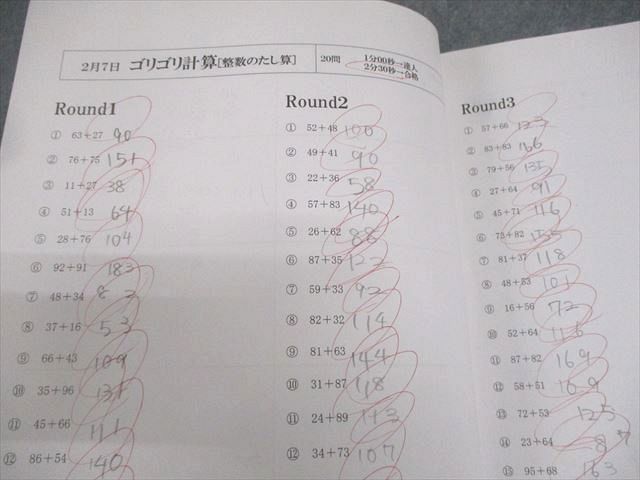 2月7日 ゴリゴリ計算[整数のたし算] 20問 1分00秒→達人
2分30秒→合格
Round1
① 63+27 90
② 76+75 151
③ 11+27 38
④ 51+13 64
⑤ 28+76 104
⑥ 92+91 183
⑦ 48+34 82
⑧ 37+16 53
⑨ 66+43 109
⑩ 35+96 131
⑪ 45+66 111
⑫ 86+54 140
Round2
① 52+48 100
② 49+41 90
③ 22+36 58
④ 57+83 140
⑤ 26+62 88
⑥ 87+35 122
⑦ 59+33 92
⑧ 82+32 114
⑨ 81+63 144
⑩ 31+87 118
⑪ 24+89 113
⑫ 34+73 107
Round3
① 57+66 123
② 83+83 166
③ 79+56 135
④ 27+64 91
⑤ 45+71 116
⑥ 73+82 155
⑦ 81+37 118
⑧ 48+53 101
⑨ 16+56 72
⑩ 52+64 116
⑪ 87+82 169
⑫ 58+51 109
⑬ 72+53 125
⑭ 23+64 87
⑮ 95+68 163